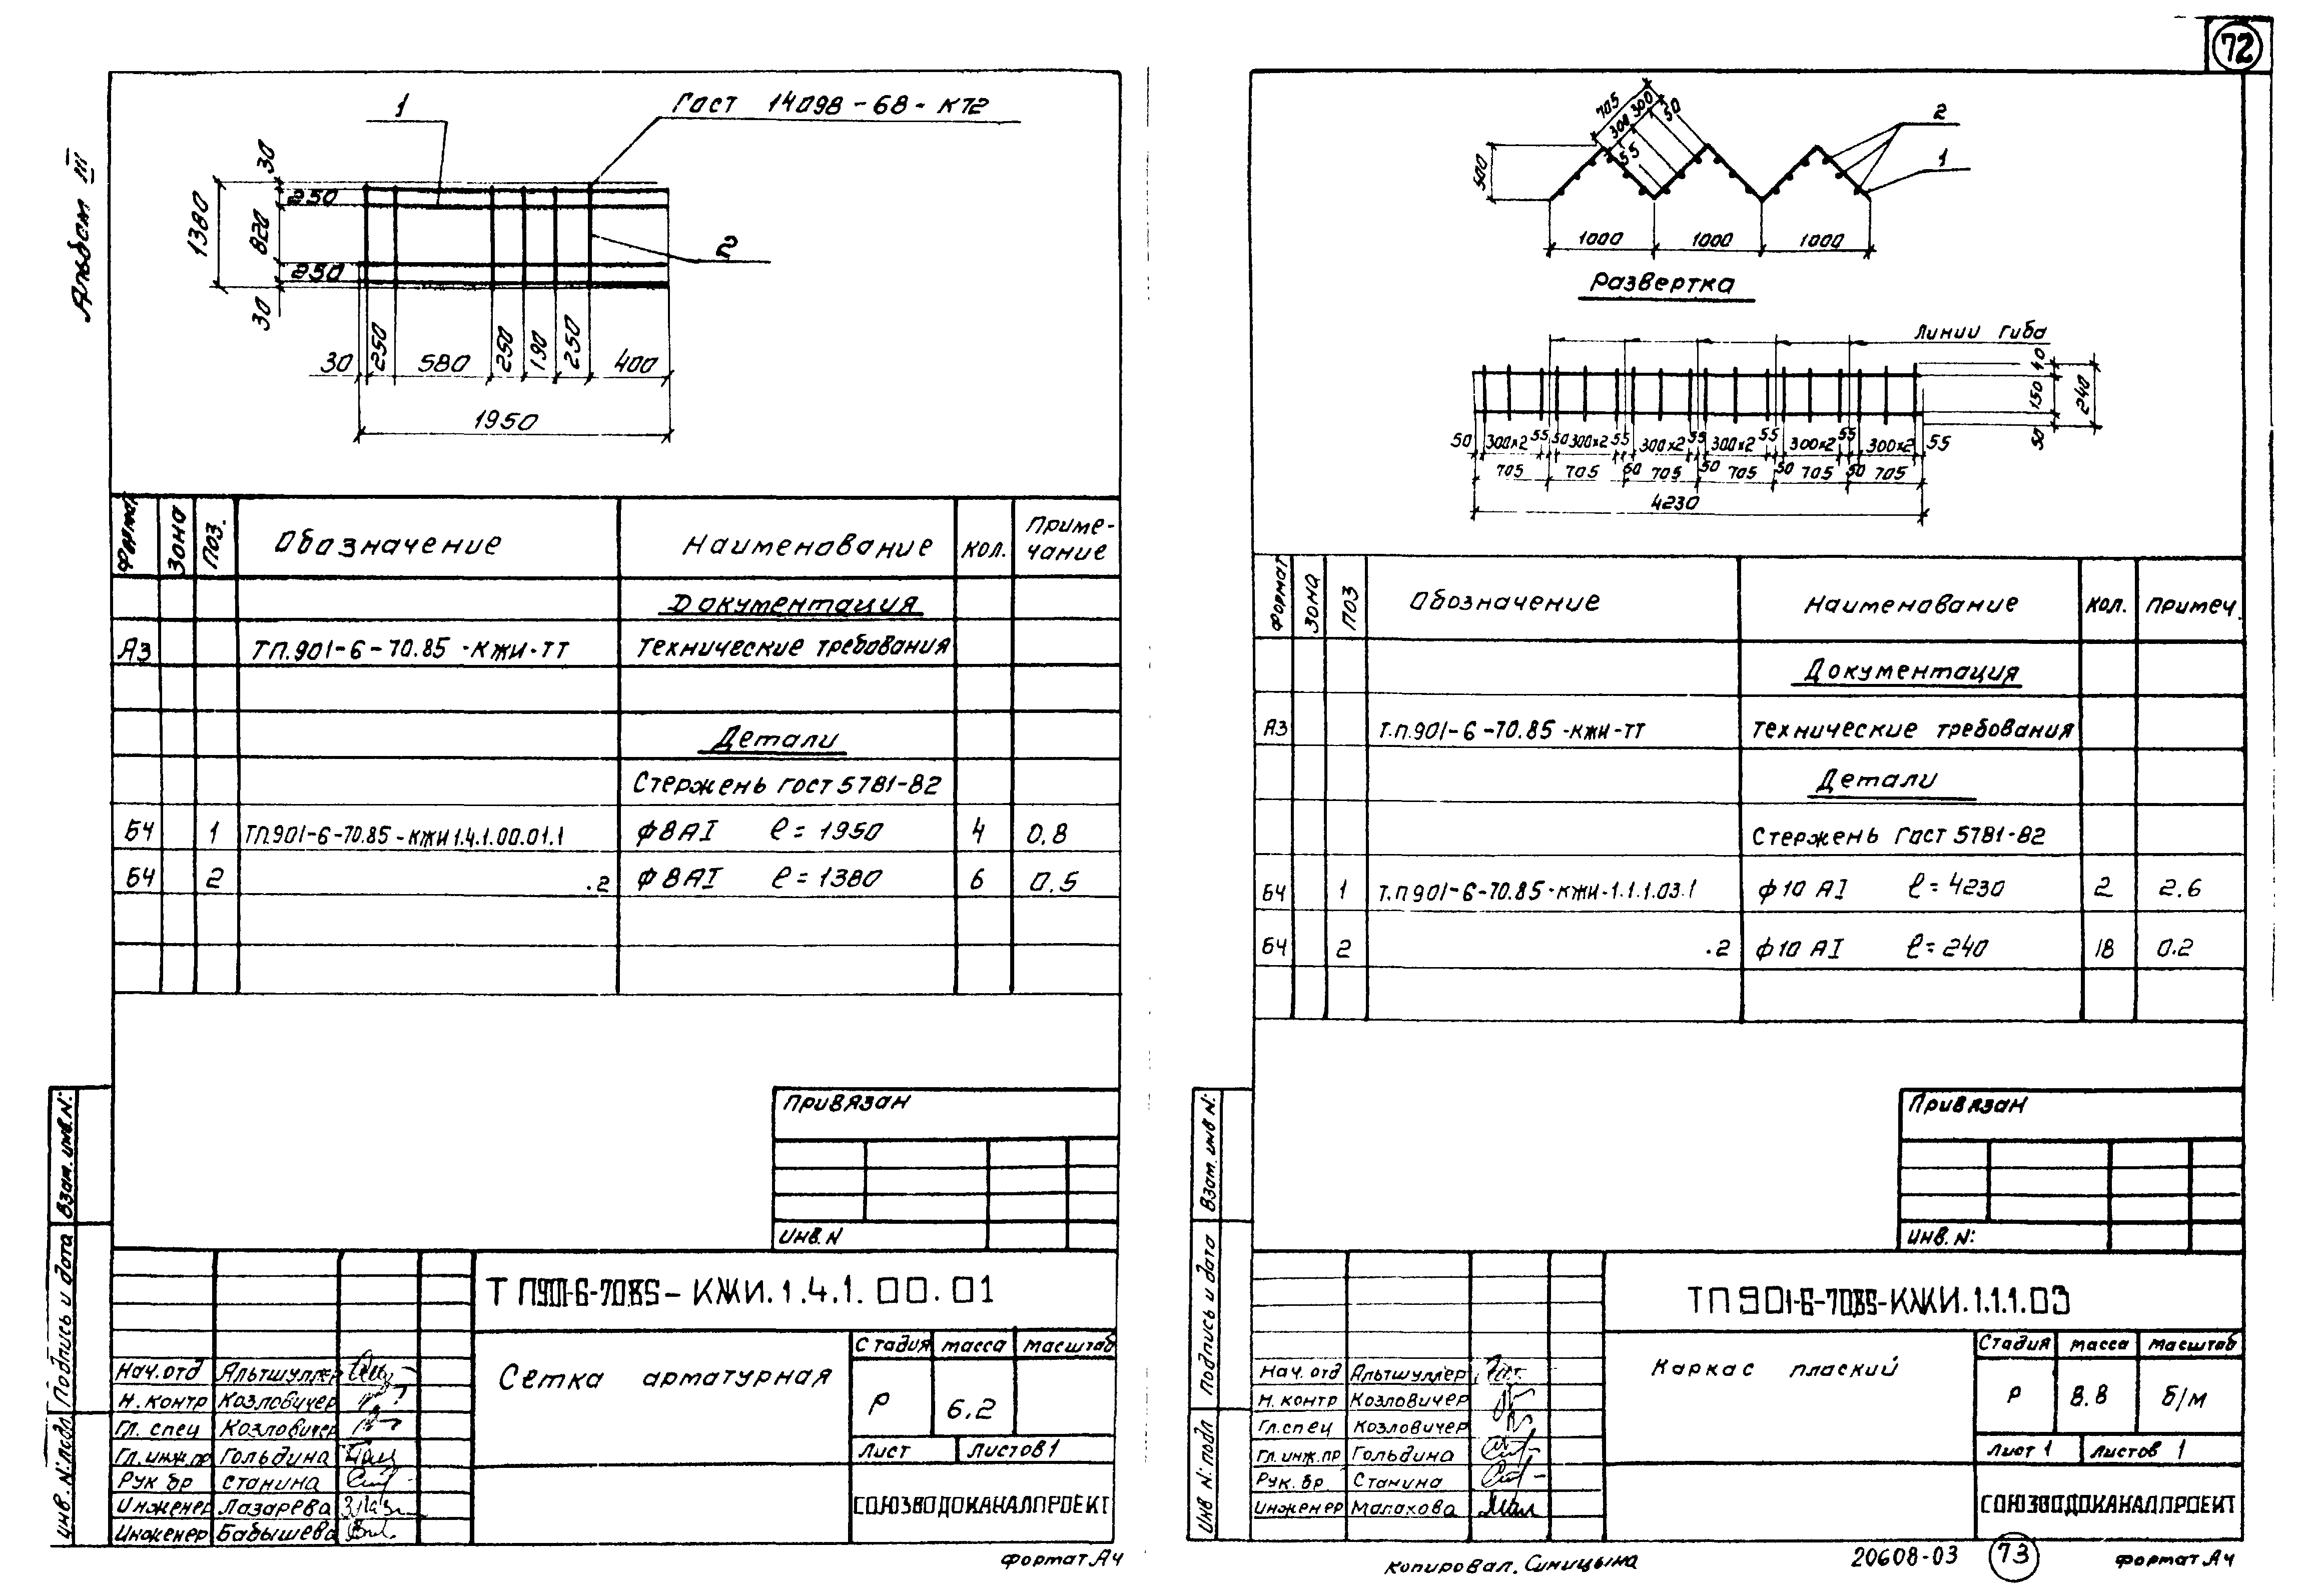 72
Альбом III
1
Гост 14098-68-КТ2
30
250
820
250
30
1380
2
30
250
580
250
190
250
400
1950
Формат
Зона
Поз.
Обозначение
Наименование
кол.
Приме-
чание
Документация
А3
ТП.901-6-70.85-КЖИ-ТТ
Технические требования
Детали
Стержень гост 5781-82
БЧ 1 ТП901-6-70.85-КЖИ1.4.1.00.01.1 ф8АI ℓ=1950 4 0.8
БЧ 2 .2 Ф8АI ℓ=1380 6 0.5
Привязан
Инв. N
инв. N:подл Подпись и дата Взам. инв. N:
ТП901-6-70.85-КЖИ.1.4.1.00.01
Нач.отд Альтшуллер
Н. контр Козловичер
Гл. спец Козловичер
Гл. инж.пр Гольдина
Рук бр Станина
Инженер Лазарева
Инженер Бабышева
Сетка арматурная
Стадия масса масштаб
Р 6.2
Лист Листов 1
СОЮЗВОДОКАНАЛПРОЕКТ
формат А4
705
300 300 50
55
500
2
1
1000 1000 1000
Развертка
Линии гиба
40
150
50
240
50 300х2 55 50 300х2 55 300х2 55 300х2 55 300х2 55 300х2 55
705 705 50 705 50 705 50 705 50 705
4230
Формат
Зона
Поз
Обозначение
Наименование
кол.
Примеч.
Документация
А3
Т.П.901-6-70.85-КЖИ-ТТ
Технические требования
Детали
Стержень Гост 5781-82
БЧ 1 Т.П901-6-70.85-КЖИ-1.1.1.03.1 ф10 АI ℓ=4230 2 2.6
БЧ 2 .2 ф10 АI ℓ=240 18 0.2
Привязан
Инв. N:
Инв N:подл Подпись и дата Взам. инв N:
ТП901-6-70.85-КЖИ.1.1.1.03
Нач.отд Альтшуллер
Н. контр Козловичер
Гл.спец Козловичер
Гл. инж.пр Гольдина
Рук. бр Станина
Инженер Малахова
Каркас плаский
Стадия масса масштаб
Р 8.8 б/м
Лист 1 Листов 1
СОЮЗВОДОКАНАЛПРОЕКТ
копировал. Синицына
20608-03
73
формат А4